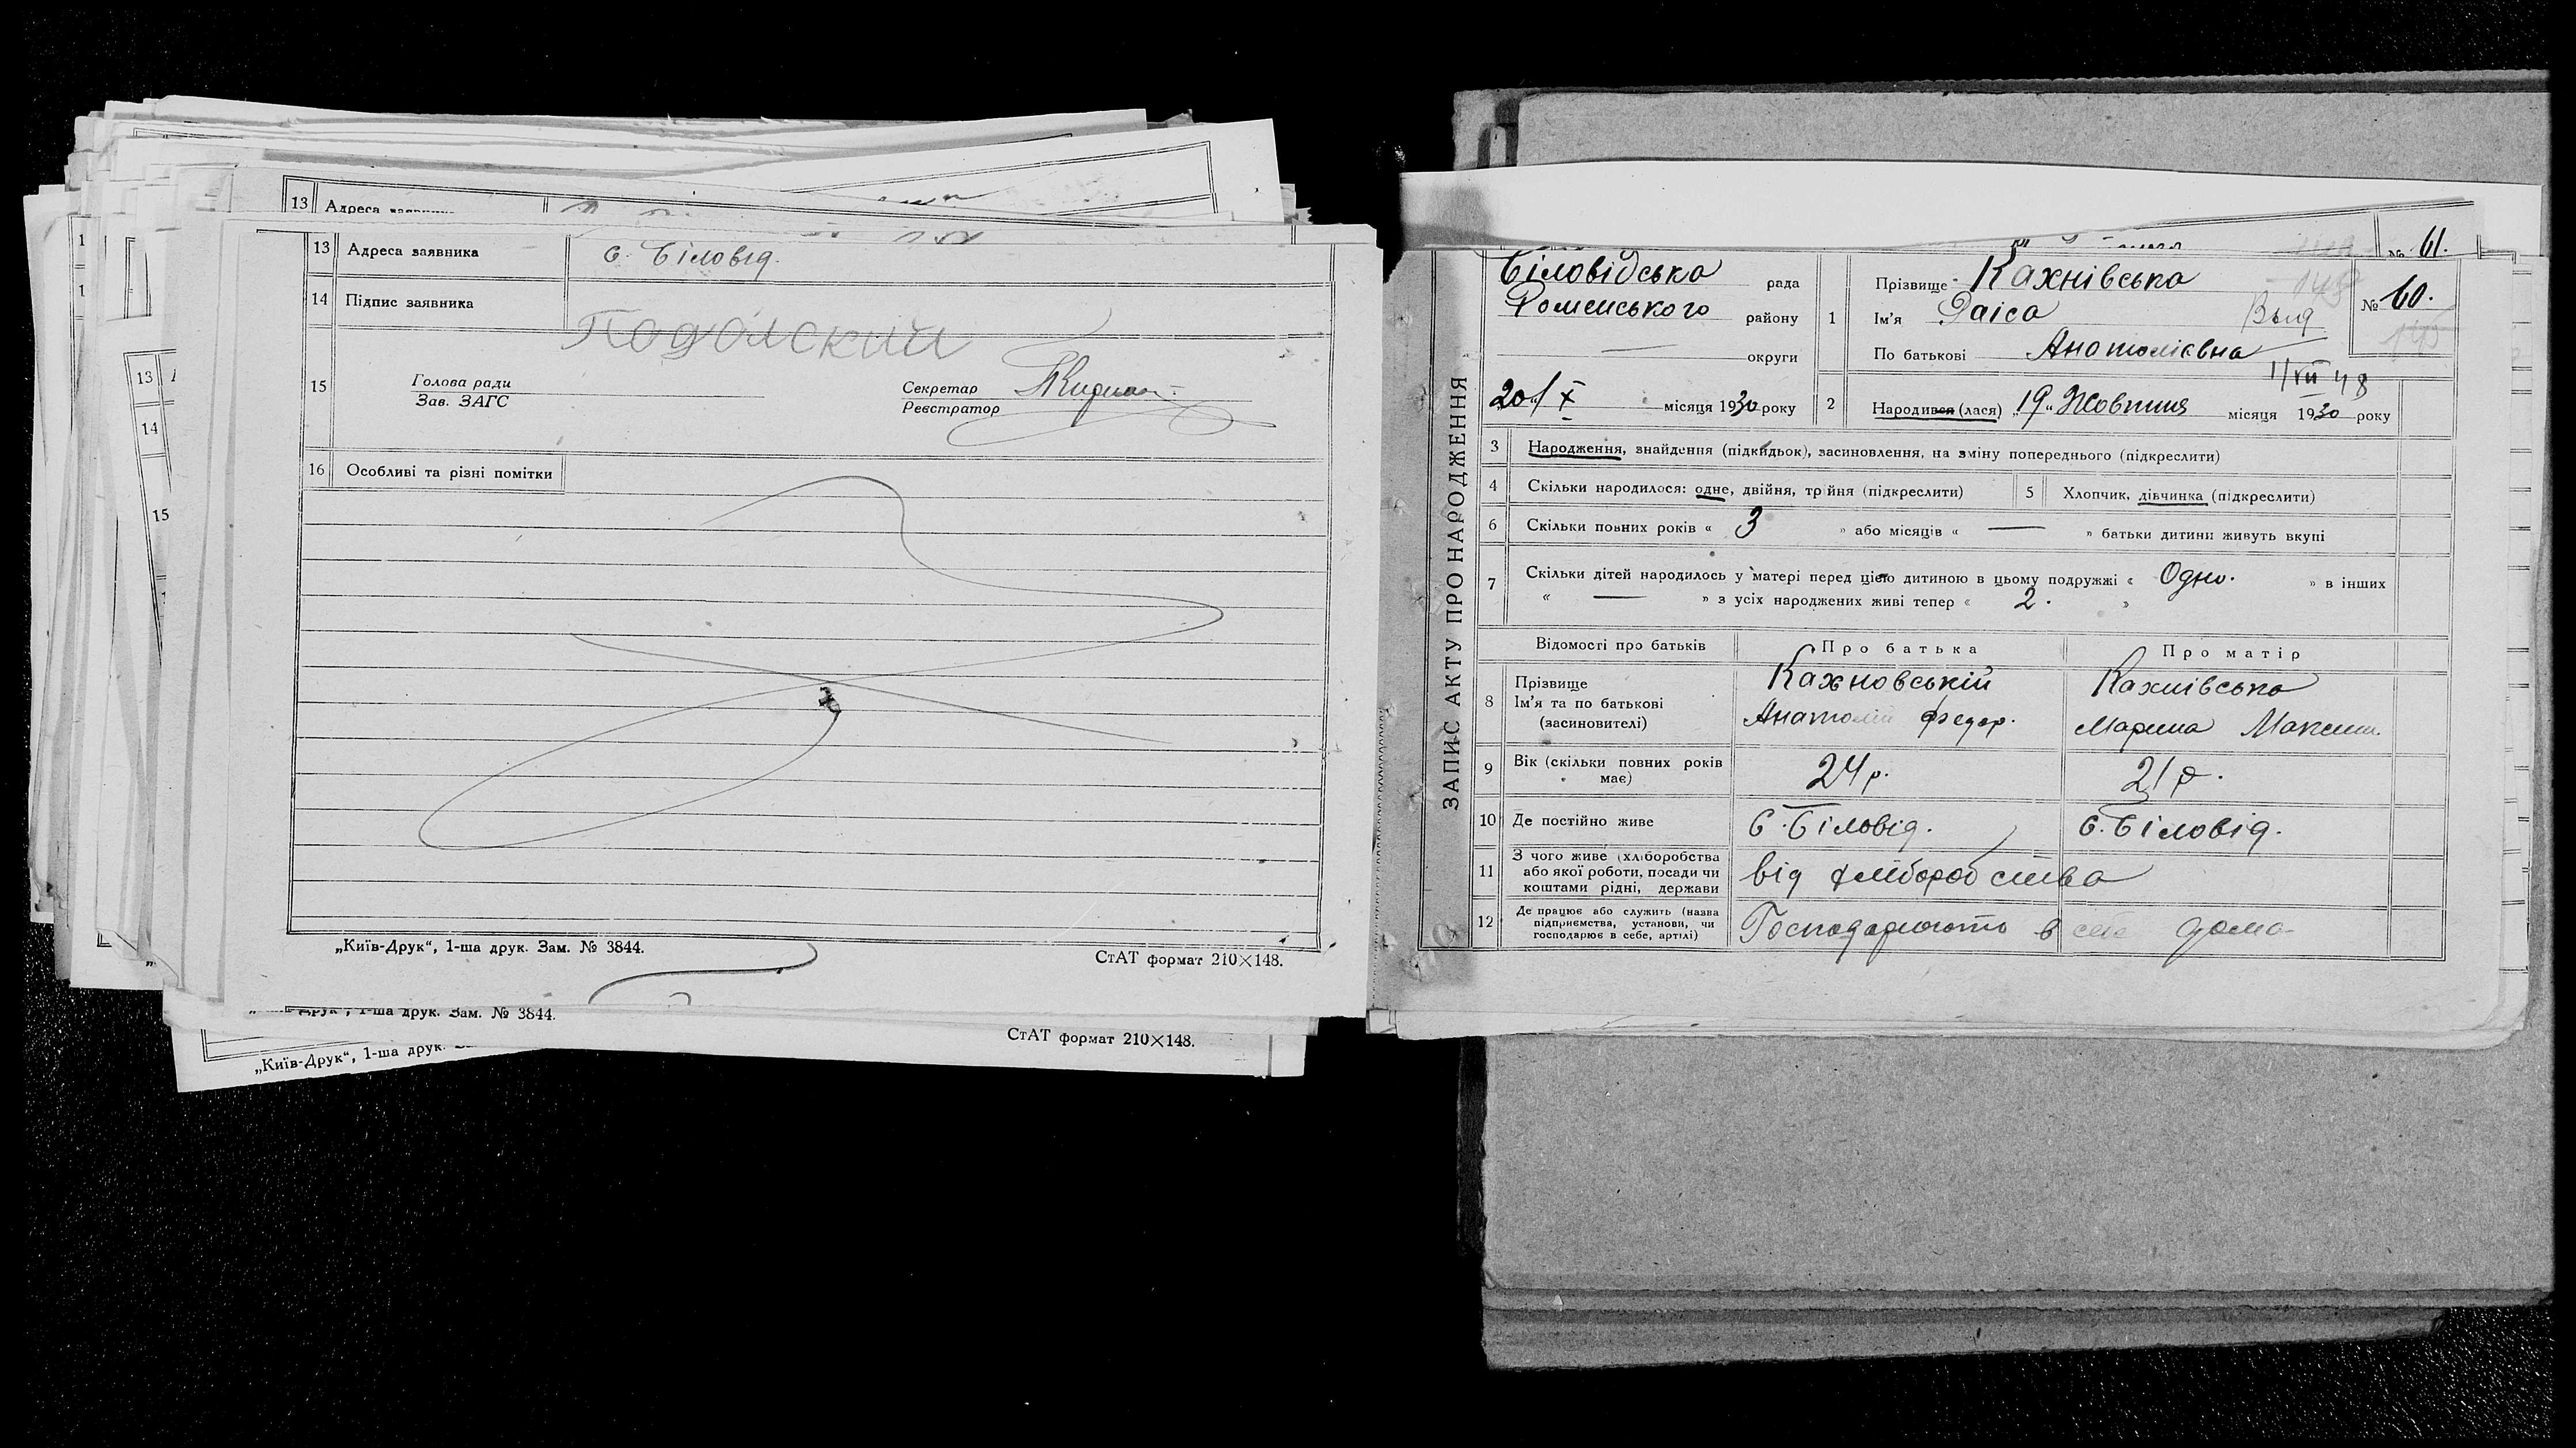 13 Адреса
13 Адреса заявника с. Біловід.
14 Підпис заявника
Подолский
15 Голова ради
Зав. ЗАГС
Секретар
Реєстратор
16 Особливі та різні помітки
„Київ-Друк“, 1-ша друк. Зам. № 3844.
СтАТ формат 210×148.
1-ша друк. Зам. № 3844.
СтАТ формат 210×148.
„Київ-Друк“, 1-ша друк.
13
14
15
№ 61.
ЗАПИС АКТУ ПРО НАРОДЖЕННЯ
Біловідська рада
Роменського району
— округи
20/X місяця 1930 року
1 Прізвище Кахнівська
Ім'я Раіса
По батькові Анатоліевна
№ 60.
Выд
1/VII 48
2 Народився (лася) „19“ Жовтня місяця 1930 року
3 Народження, знайдення (підкидьок), засиновлення, на зміну попереднього (підкреслити)
4 Скільки народилося: одне, двійня, трійня (підкреслити) 5 Хлопчик, дівчинка (підкреслити)
6 Скільки повних років « 3 » або місяців « — » батьки дитини живуть вкупі
7 Скільки дітей народилось у матері перед цією дитиною в цьому подружжі « Одно. » в інших
« — » з усіх народжених живі тепер « 2. »
Відомості про батьків Про батька Про матір
8 Прізвище
Ім'я та по батькові
(засиновителі)
Кахновській
Анатолій Федор.
Кахнівська
Марина Максим.
9 Вік (скільки повних років має) 24 р. 21 р.
10 Де постійно живе С. Біловід. С. Біловід.
11 З чого живе (хліборобства
або якої роботи, посади чи
коштами рідні, держави
від хліборобства
12 Де працює або служить (назва
підприємства, установи, чи
господарює в себе, артілі)
Господарюють в себе дома